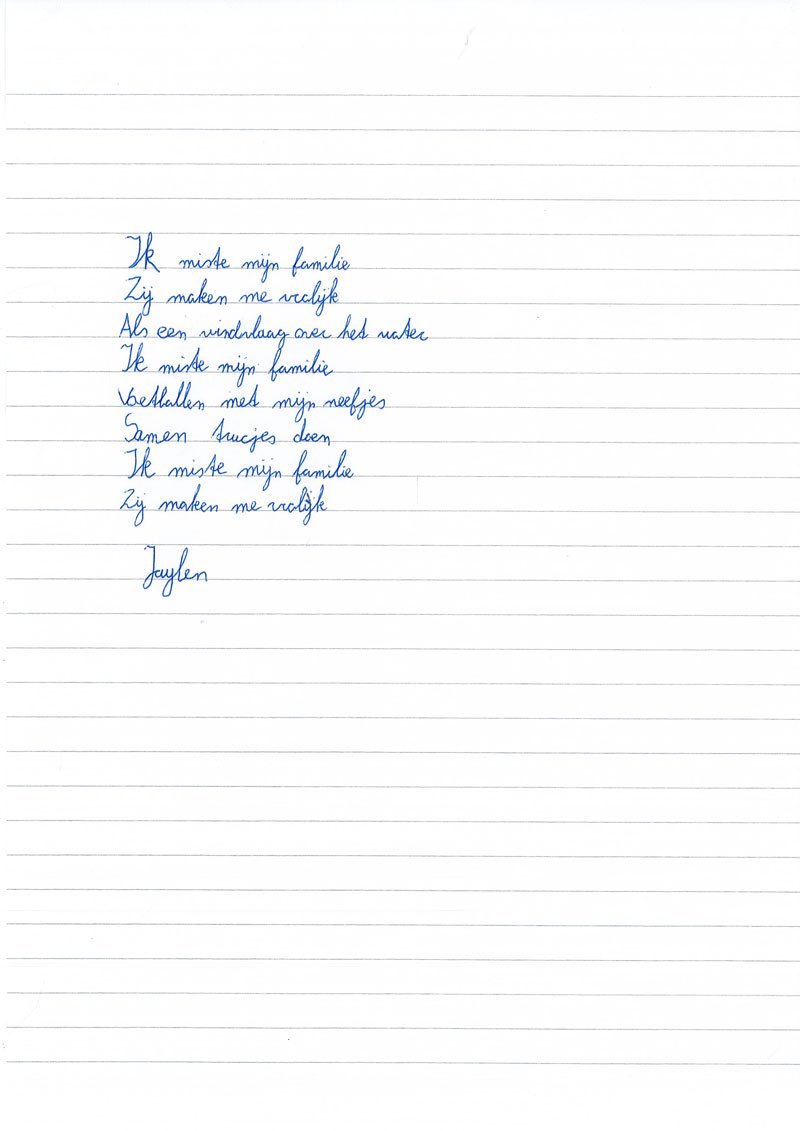 Ik miste mijn familie
Zij maken me vrolijk
Als een windvlaag over het water
Ik miste mijn familie
Voetballen met mijn neefjes
Samen trucjes doen
Ik miste mijn familie
Zij maken me vrolijk
Jaylen